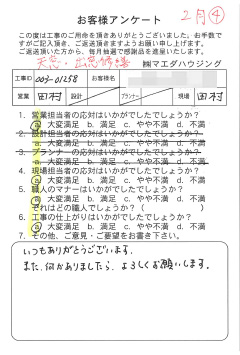 2月④
お客様アンケート
この度は工事のご用命を頂きありがとうございました。お手数で
すがご記入頂き、ご返送頂きますようお願い申し上げます。
ご返送頂いた方から、毎月抽選で感謝品を進呈いたします。
㈱マエダハウジング
工事ID 003-01258 お客様名
営業 田村 設計 プランナー 現場 田村
1. 営業担当者の応対はいかがでしたでしょうか?
a. 大変満足 b. 満足 c. やや不満 d. 不満
2. 設計担当者の応対はいかがでしたでしょうか?
a. 大変満足 b. 満足 c. やや不満 d. 不満
3. プランナーの応対はいかがでしたでしょうか?
a. 大変満足 b. 満足 c. やや不満 d. 不満
4. 現場担当者の応対はいかがでしたでしょうか?
a. 大変満足 b. 満足 c. やや不満 d. 不満
5. 職人のマナーはいかがでしたでしょうか?
a. 大変満足 b. 満足 c. やや不満 d. 不満
それはどの職人でしょうか?( )
6. 工事の仕上がりはいかがでしたでしょうか?
a. 大変満足 b. 満足 c. やや不満 d. 不満
7. その他、ご意見・ご要望をお書き下さい。
いつもありがとうございます。
また、何かありましたら、よろしくお願いします。